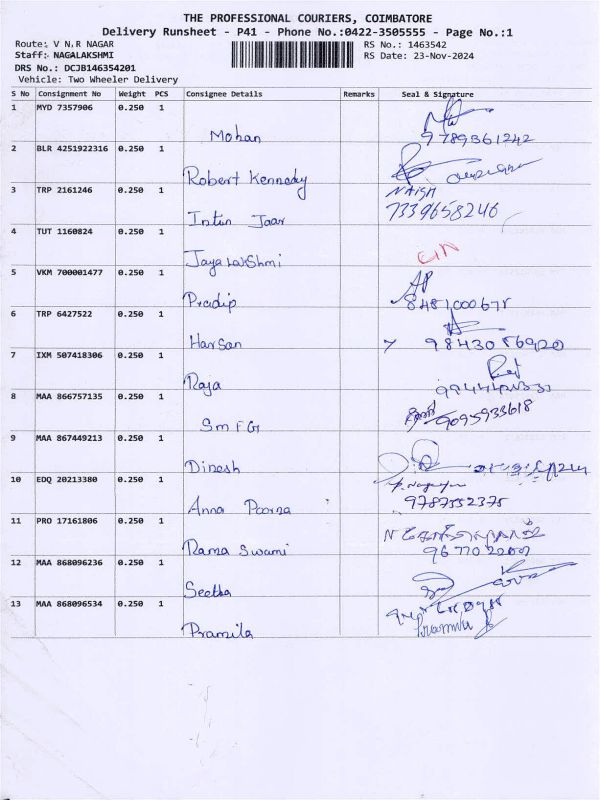 THE PROFESSIONAL COURIERS, COIMBATORE
Delivery Runsheet - P41 - Phone No.:0422-3505555 - Page No.:1
Route: V N.R NAGAR RS No.: 1463542
Staff: NAGALAKSHMI RS Date: 23-Nov-2024
DRS No.: DCJB146354201
Vehicle: Two Wheeler Delivery
S No Consignment No Weight PCS Consignee Details Remarks Seal & Signature
1 MYD 7357906 0.250 1
Mohan 9789361242
2 BLR 4251922316 0.250 1
Robert Kennedy
3 TRP 2161246 0.250 1
Jaar 7339658246
4 TUT 1160824 0.250 1
JayalakShmi
5 VKM 700001477 0.250 1
Pradip
6 TRP 6427522 0.250 1
Harsan
7 IXM 507418306 0.250 1
Raja
8 MAA 866757135 0.250 1
SmFG 9095933618
9 MAA 867449213 0.250 1
Dinesh
10 EDQ 20213380 0.250 1
Anna Poorna 9787552375
11 PRO 17161806 0.250 1
Rama Swami
12 MAA 868096236 0.250 1
Seetha
13 MAA 868096534 0.250 1
Pramila